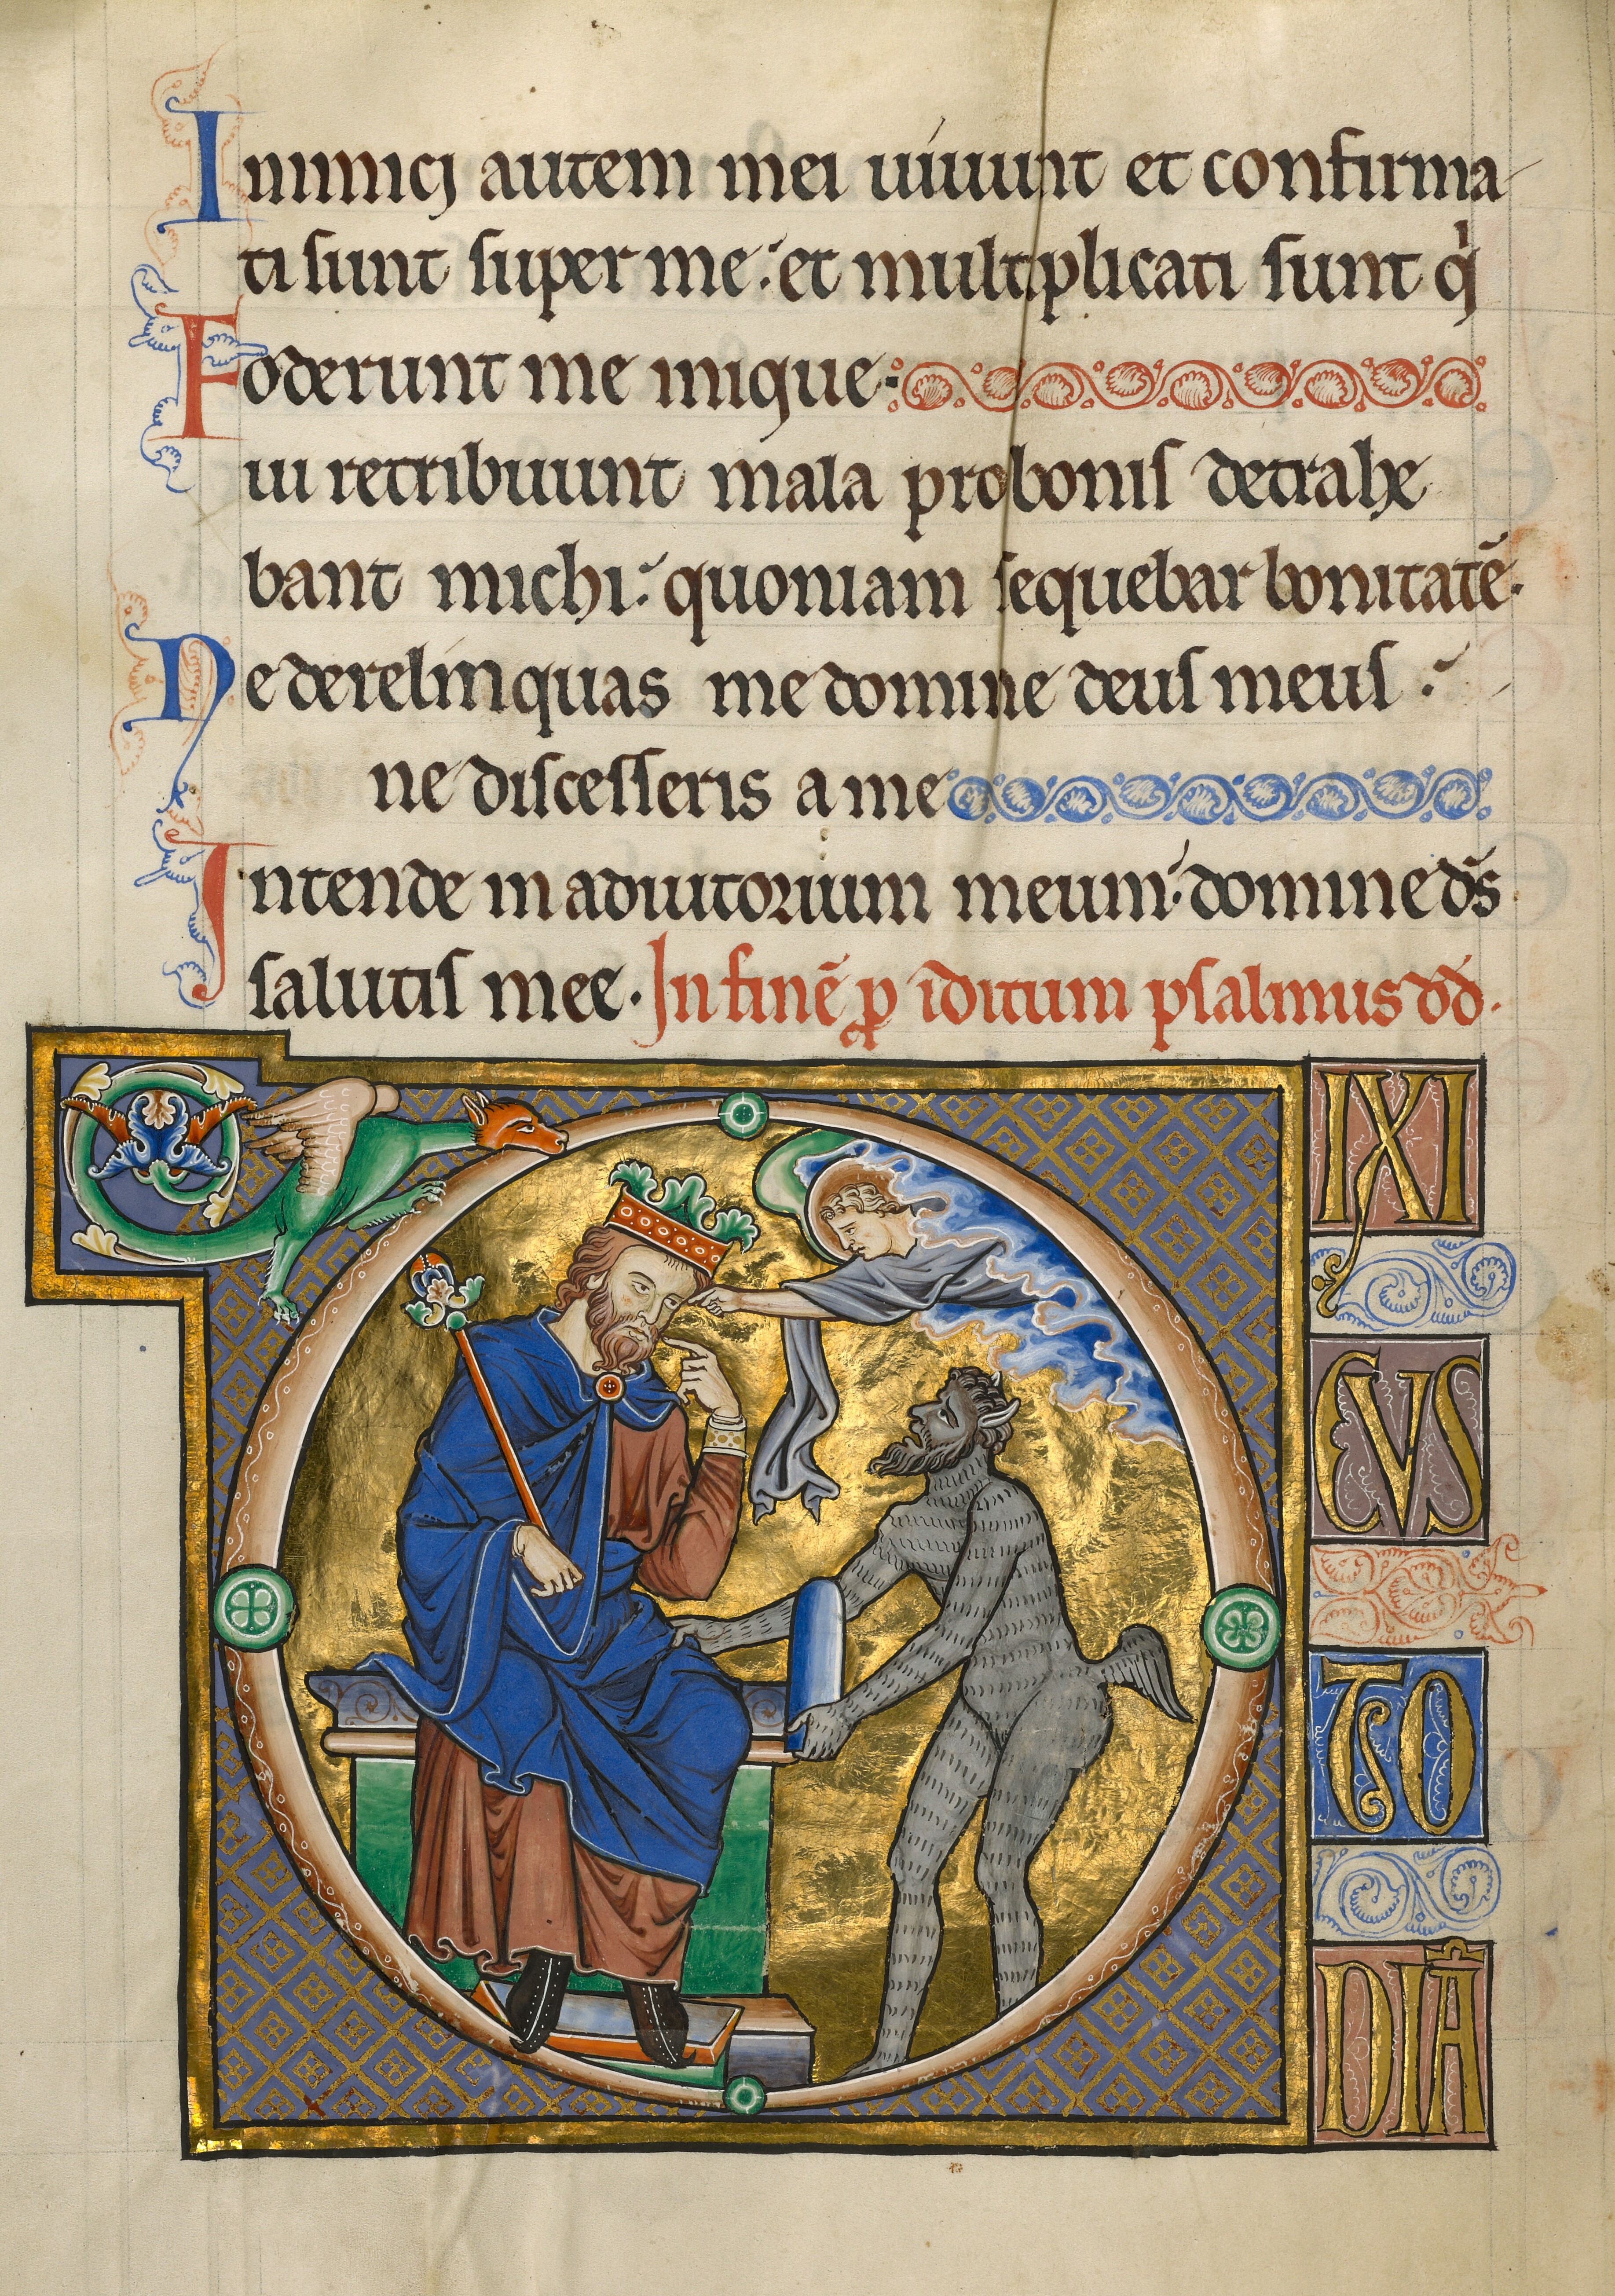 Inimici autem mei uiuunt et confirma
ti sunt super me: et multiplicati sunt qͥ
Foderunt me inique:
ui retribuunt mala pro bonis detrahe
bant michi: quoniam sequebar bonitatē.
Ne derelinquas me domine deus meus:
ne discesseris a me
Intende in adiutorium meum: domine d̄s
salutis mee. In finē ꝓ iditum psalmus d̄d.
DIXI
CVS
TO
DIĀ